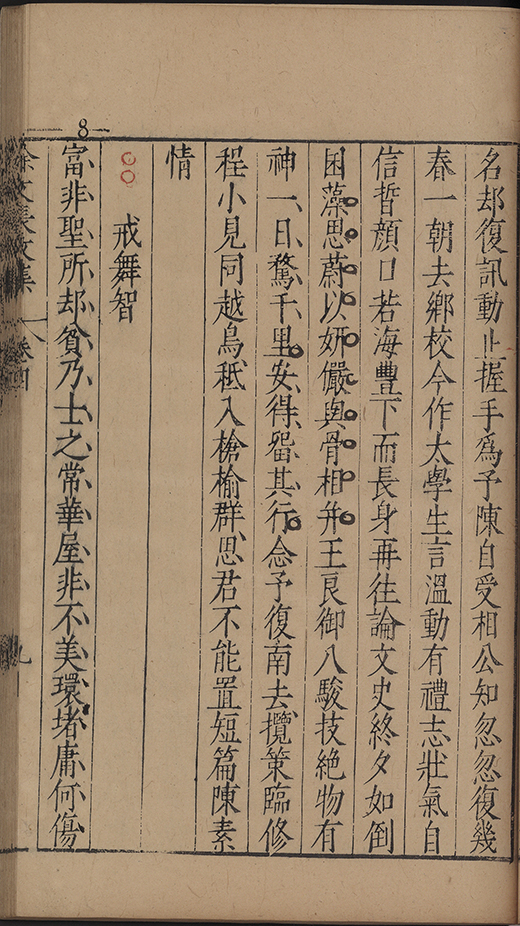 名却復訊動止握手為予陳自受相公知忽忽復幾
春一朝去鄉校今作太學生言溫動有禮志壯氣自
信皙顏口若海豐下而長身再往論文史終夕如倒
困藻思蔚以妍儼與骨相并王良御八駿技絕物有
神一日騖千里安得畱其行念予復南去攬策臨修
程小見同越鳥秪入槍榆群思君不能置短篇陳素
情
戒舞智
富非聖所却貧乃士之常華屋非不美環堵庸何傷
徐文長文集
卷四
九
8